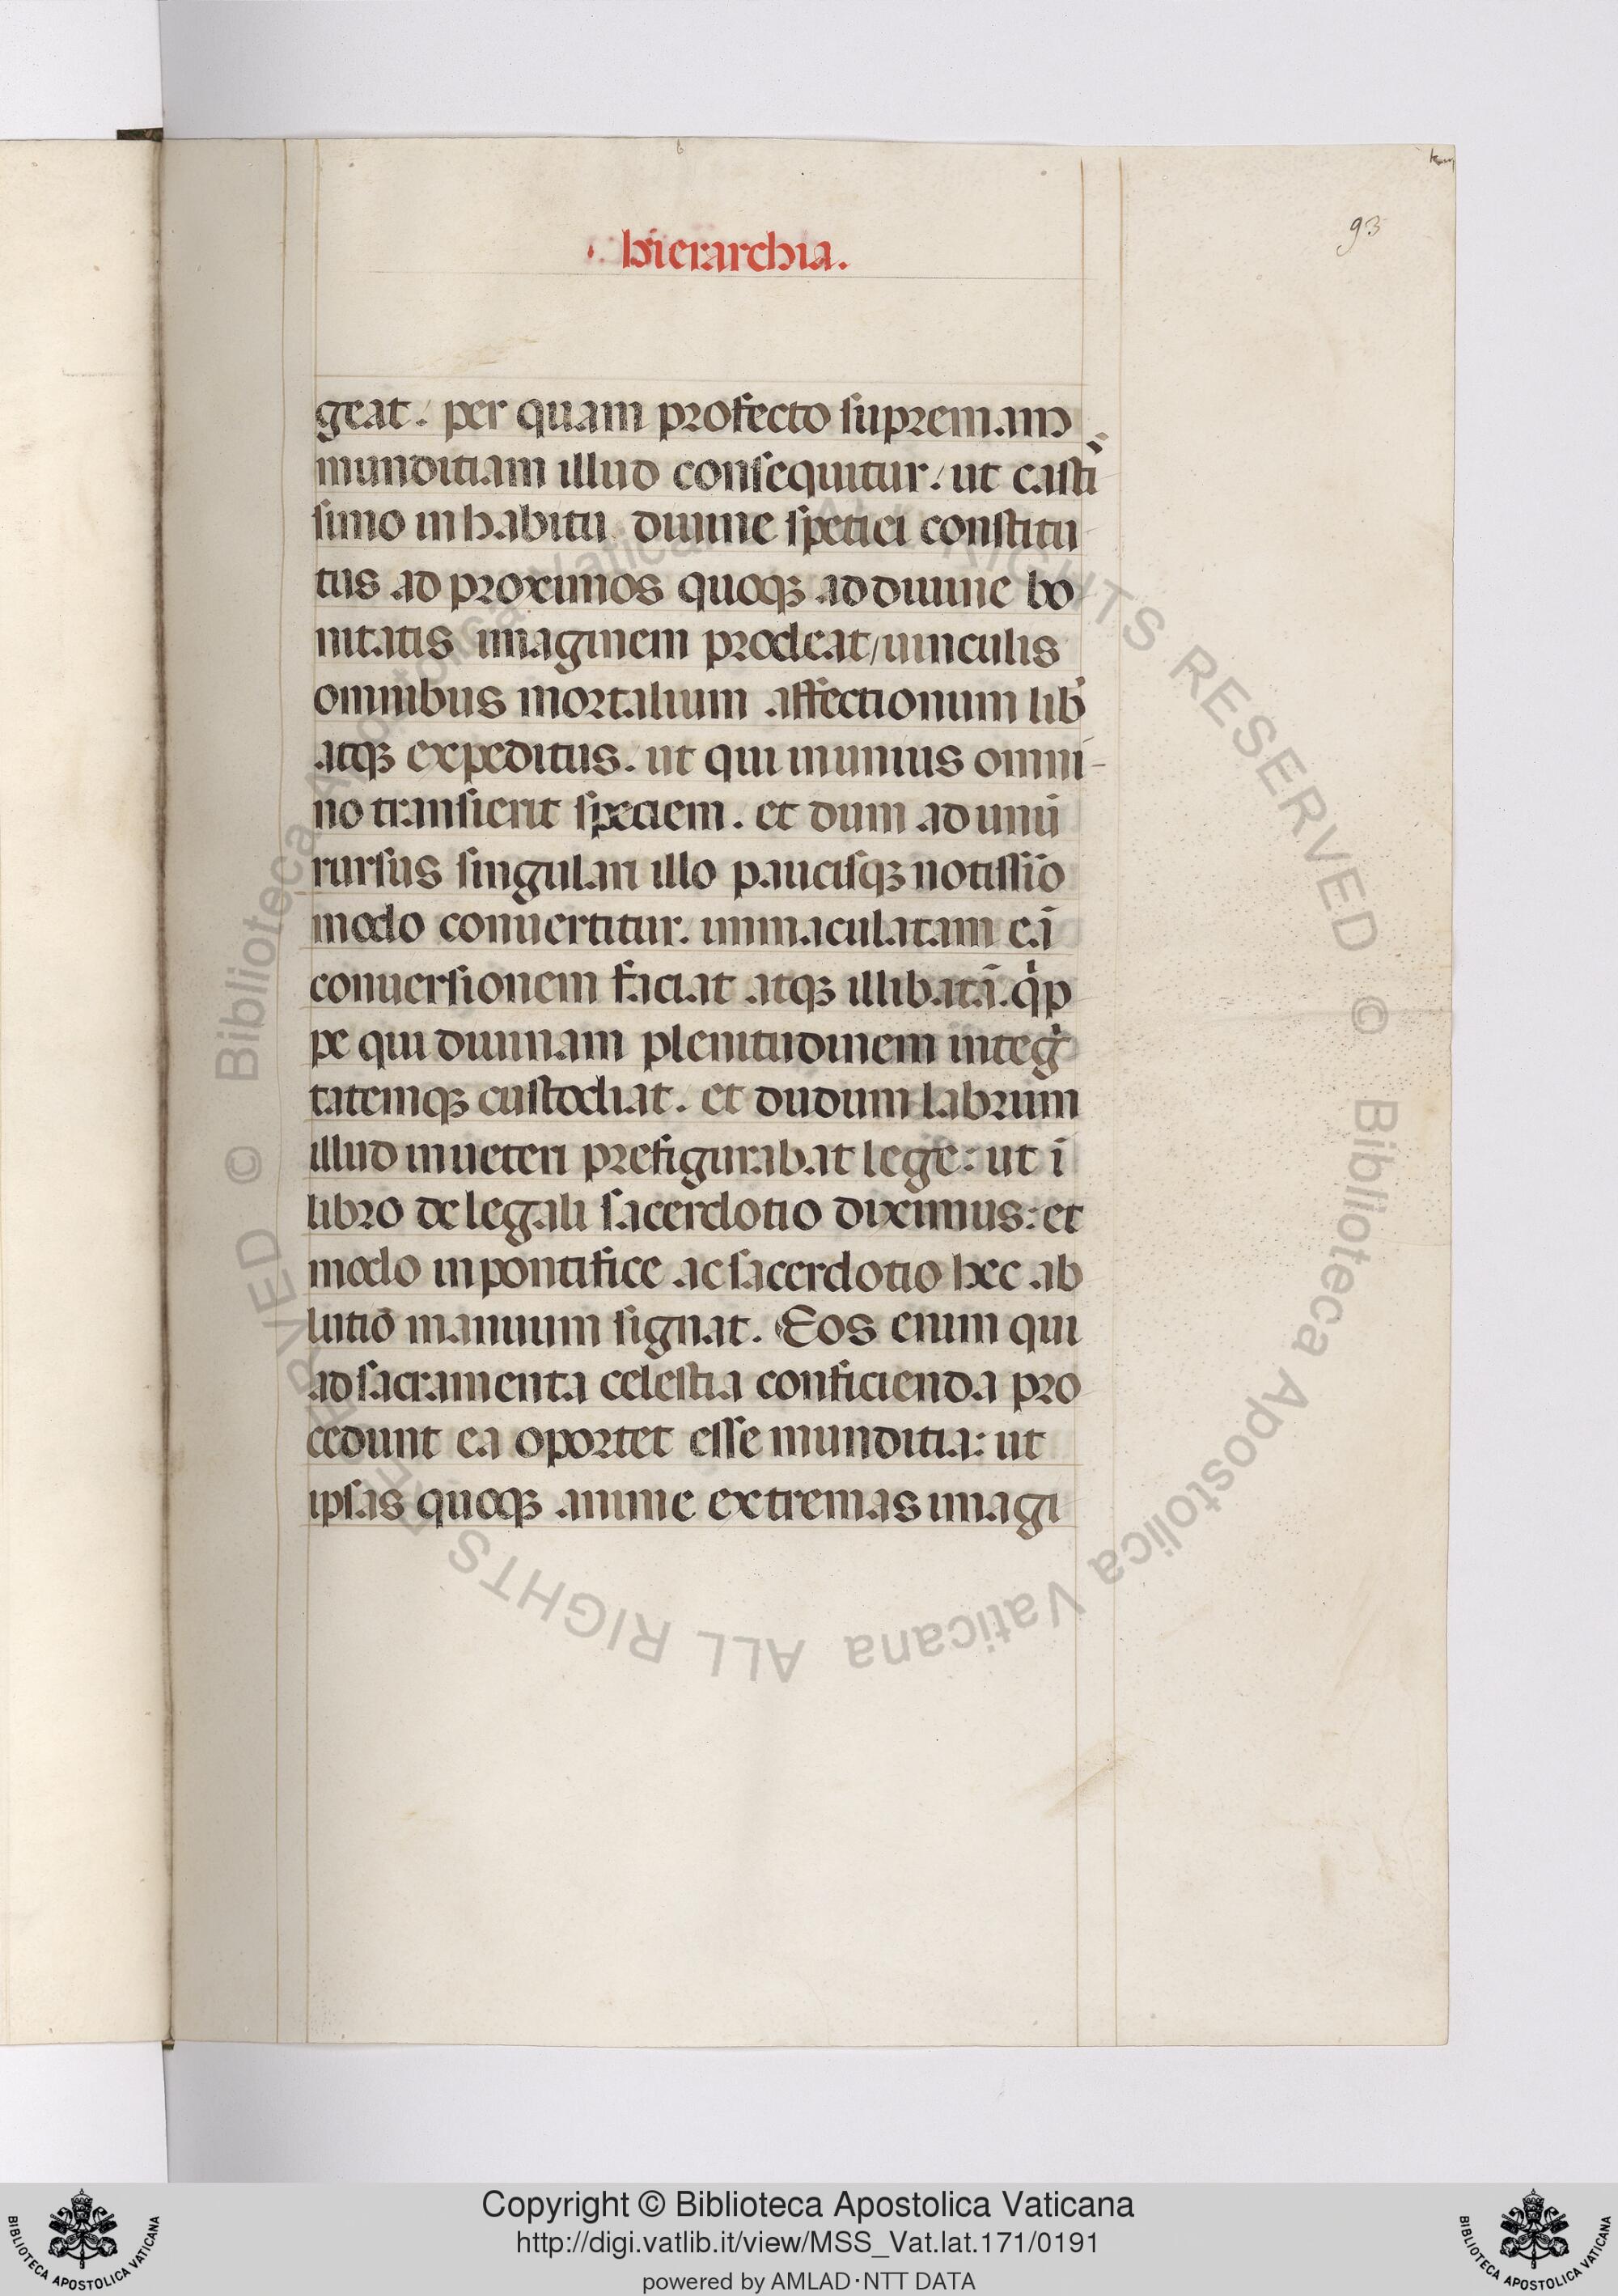 93
hierarchia.
geat. per quam profecto supremam
munditiam illud consequitur. ut casti
simo in habitu diuine spetiei constitu
tus ad proximos quoqꝫ ad diuine bo
nitatis imaginem prodeat/ uinculis
omnibus mortalium affectionum lib̕
atqꝫ expeditus. ut qui munius omni-
no transierit speciem. et dum ad unū
rursus singulari illo paucisqꝫ notissīo
modo conuertitur. immaculatam eā
conuersionem faciat atqꝫ illibatā. qͥp
pe qui diuinam plenitudinem integͥ
tatemqꝫ custodiat. et dudum labrum
illud in ueteri prefigurabat lege: ut ī
libro de legali sacerdotio diximus: et
modo in pontifice ac sacerdotio hec ab
lutio manuum signat. Eos enim qui
ad sacramenta celestia conficienda pro
cedunt ea oportet esse munditia: ut
ipsas quoqꝫ anime extremas imagi
© Biblioteca Apostolica Vaticana ALL RIGHTS RESERVED © Biblioteca Apostolica Vaticana ALL RIGHTS RESERVED
Copyright © Biblioteca Apostolica Vaticana
http://digi.vatlib.it/view/MSS_Vat.lat.171/0191
powered by AMLAD·NTT DATA
BIBLIOTECA APOSTOLICA VATICANA
BIBLIOTECA APOSTOLICA VATICANA